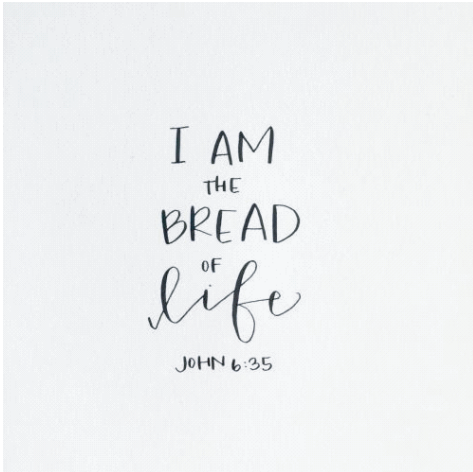 I AM
THE
BREAD
OF
life
JOHN 6:35